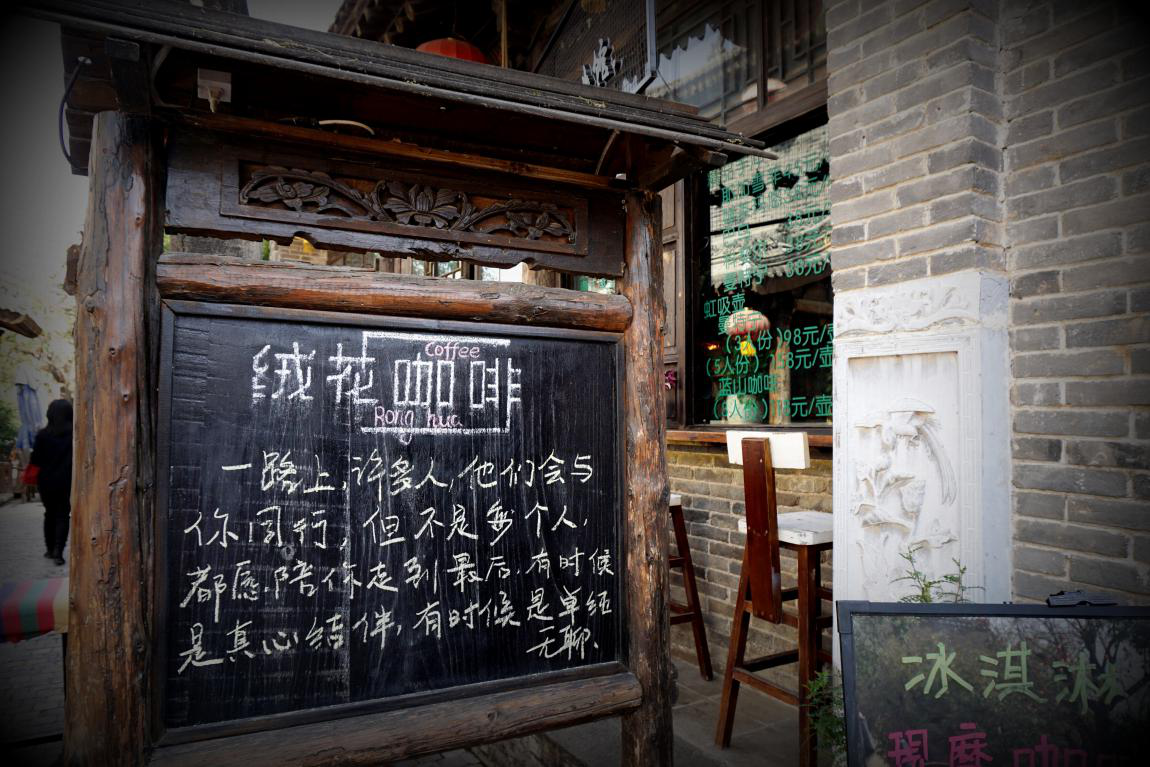 Coffee
绒花咖啡
Rong hua
一路上,许多人,他们会与
你同行,但不是每个人,
都愿陪你走到最后.有时候
是真心结伴,有时候是单纯
无聊.
虹吸壶
(3人份)98元/壶
(5人份)158元/壶
蓝山咖啡
冰淇淋
现磨咖